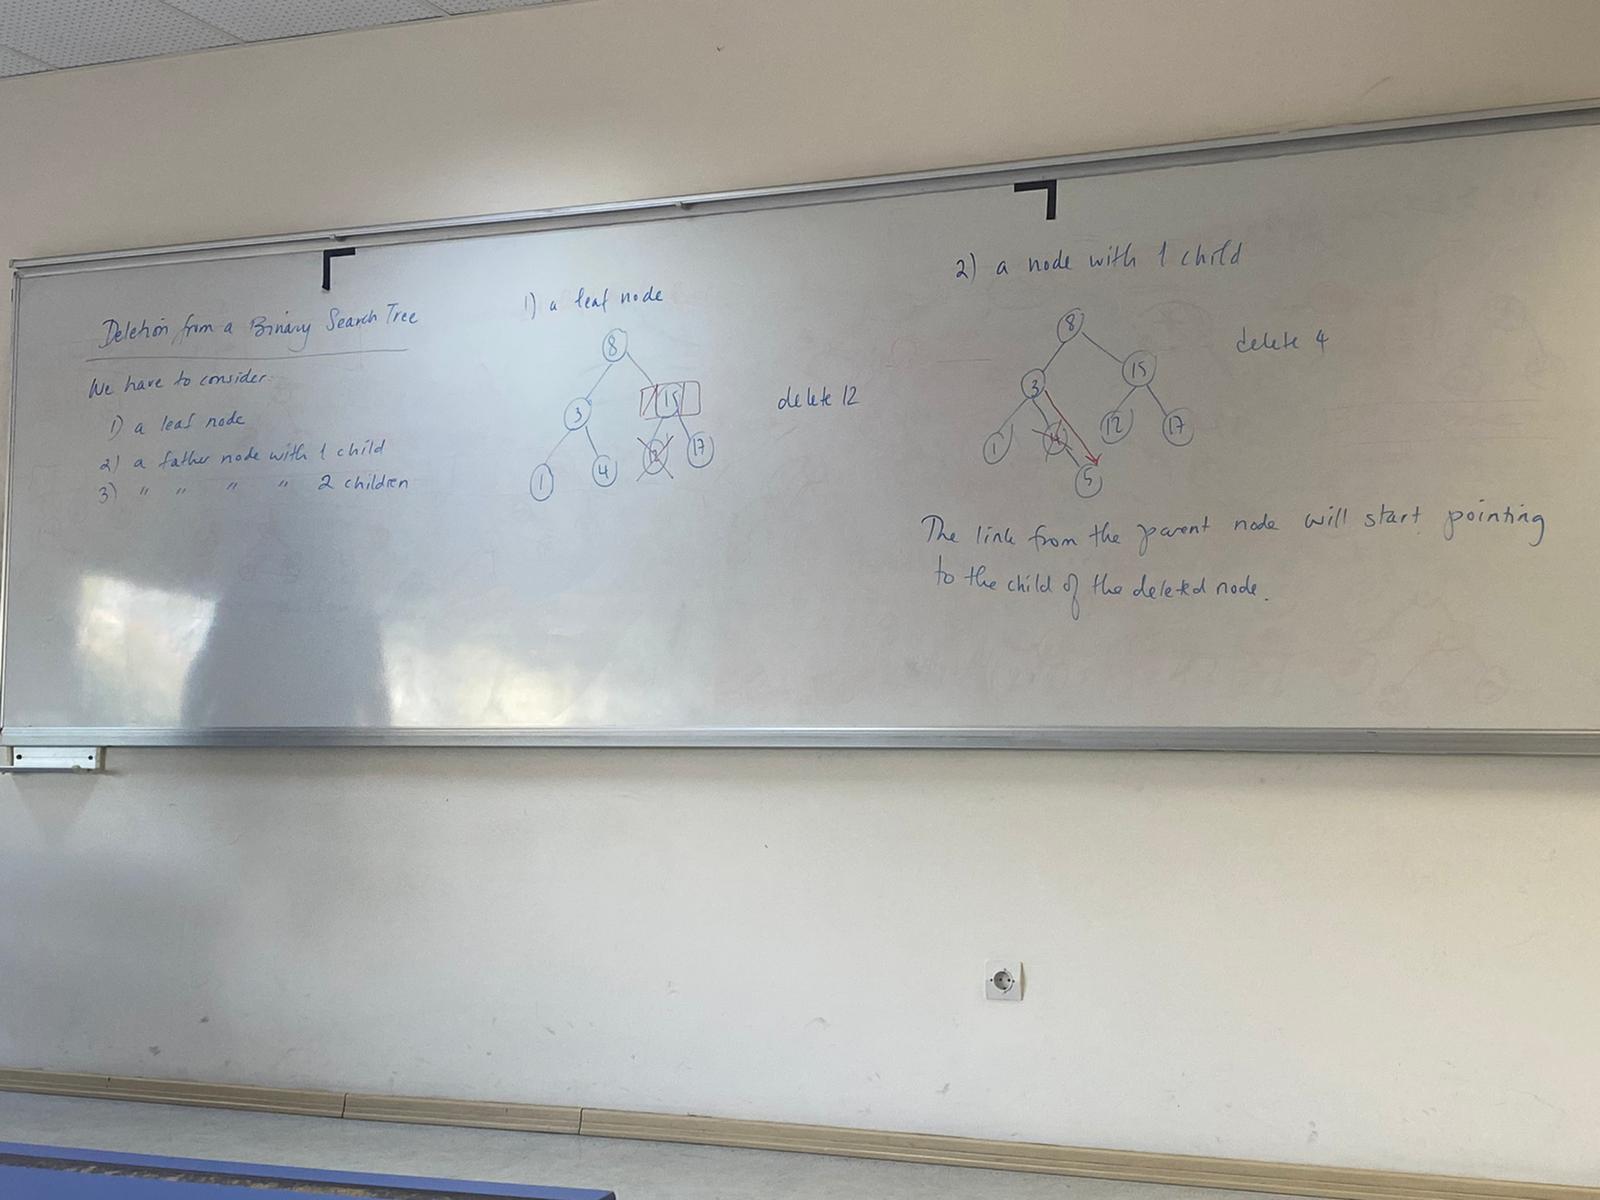 Deletion from a Binary Search Tree
We have to consider:
1) a leaf node
2) a father node with 1 child
3) " " " " 2 children
1) a leaf node
8
3 15
1 4 12 17
delete 12
2) a node with 1 child
8
3 15
1 4 12 17
5
delete 4
The link from the parent node will start pointing
to the child of the deleted node.